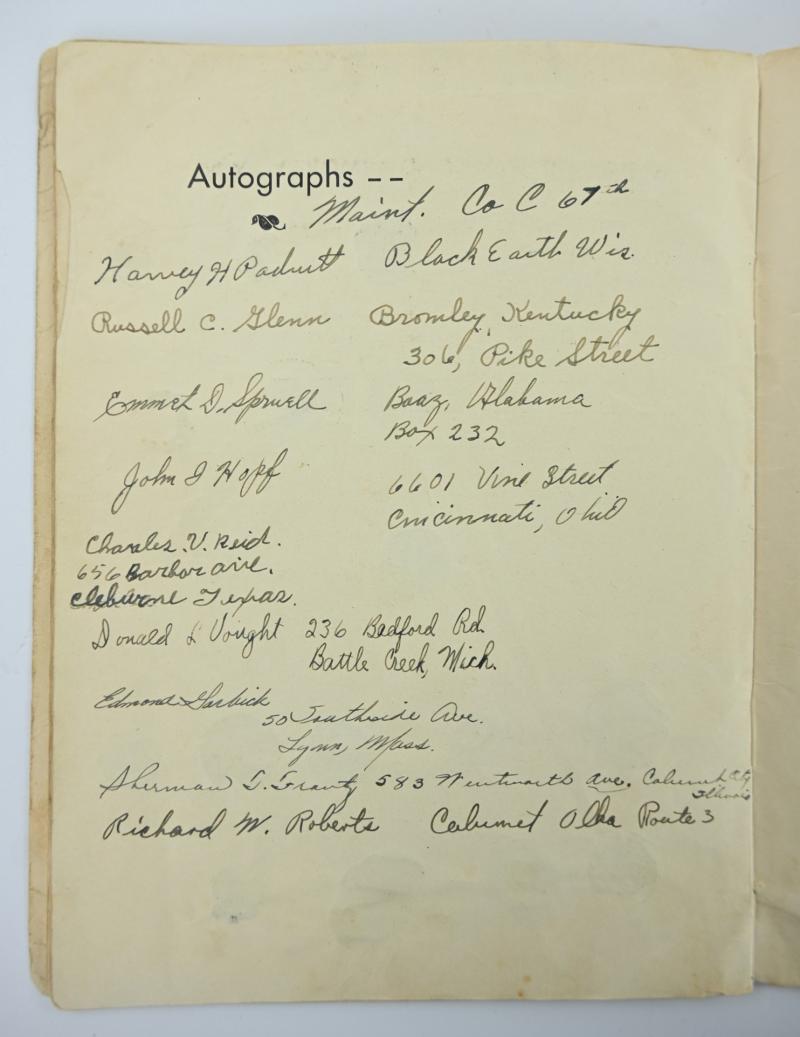 Autographs --
Maint. Co C 67th
Harvey H Padrutt Black Earth Wis.
Russell C. Glenn Bromley, Kentucky
306, Pike Street
Emmet D. Spruell Boaz, Alabama
Box 232
John J Hopf 6601 Vine Street
Cincinnati, Ohio
Charles. V. Reid.
656 Barbor ave.
Cleburne Texas.
Donald L Vought 236 Bedford Rd.
Battle Creek, Mich.
Edmond Garbick
50 Southside Ave.
Lynn, Mass.
Sherman D. Frantz 583 Wentworth Ave. Calumet City
Illinois
Richard W. Roberts Calumet Okla Route 3